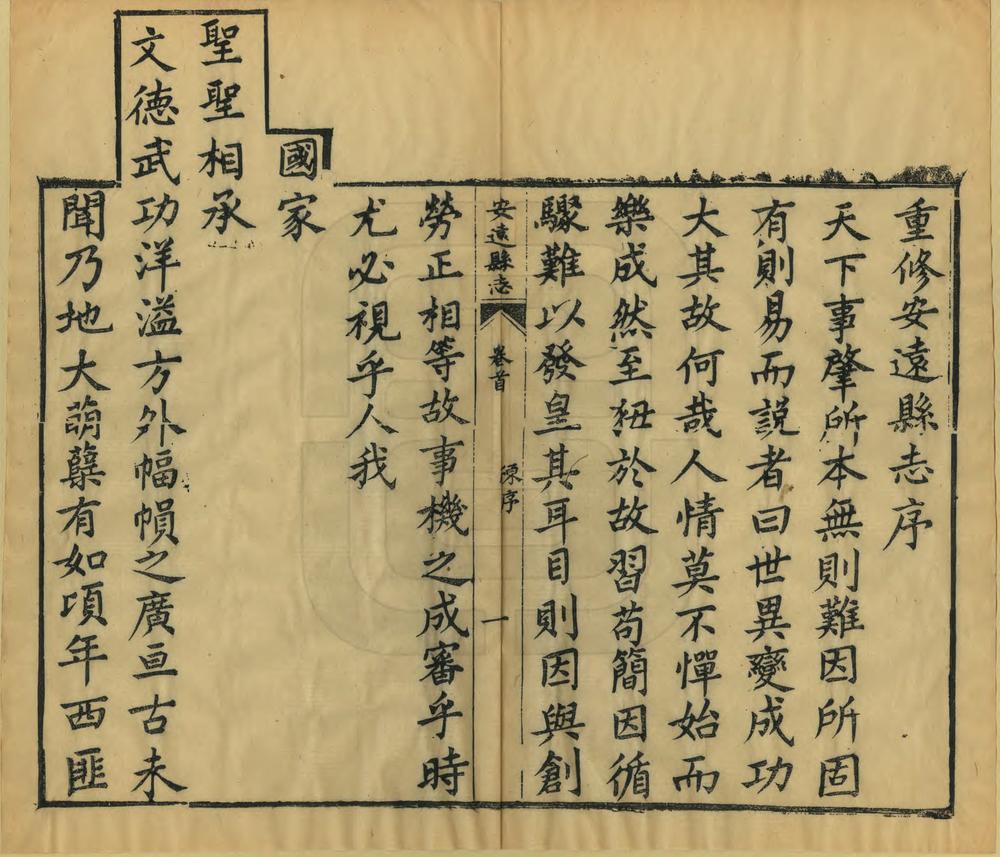 重修安遠縣志序
天下事肇所本無則難因所固
有則易而說者曰世異變成功
大其故何哉人情莫不憚始而
樂成然至狃於故習苟簡因循
驟難以發皇其耳目則因與創
安遠縣志 卷首 陳序 一
勞正相等故事機之成審乎時
尤必視乎人我
國家
聖聖相承
文德武功洋溢方外幅幀之廣亘古未
聞乃地大萌櫱有如頃年西匪